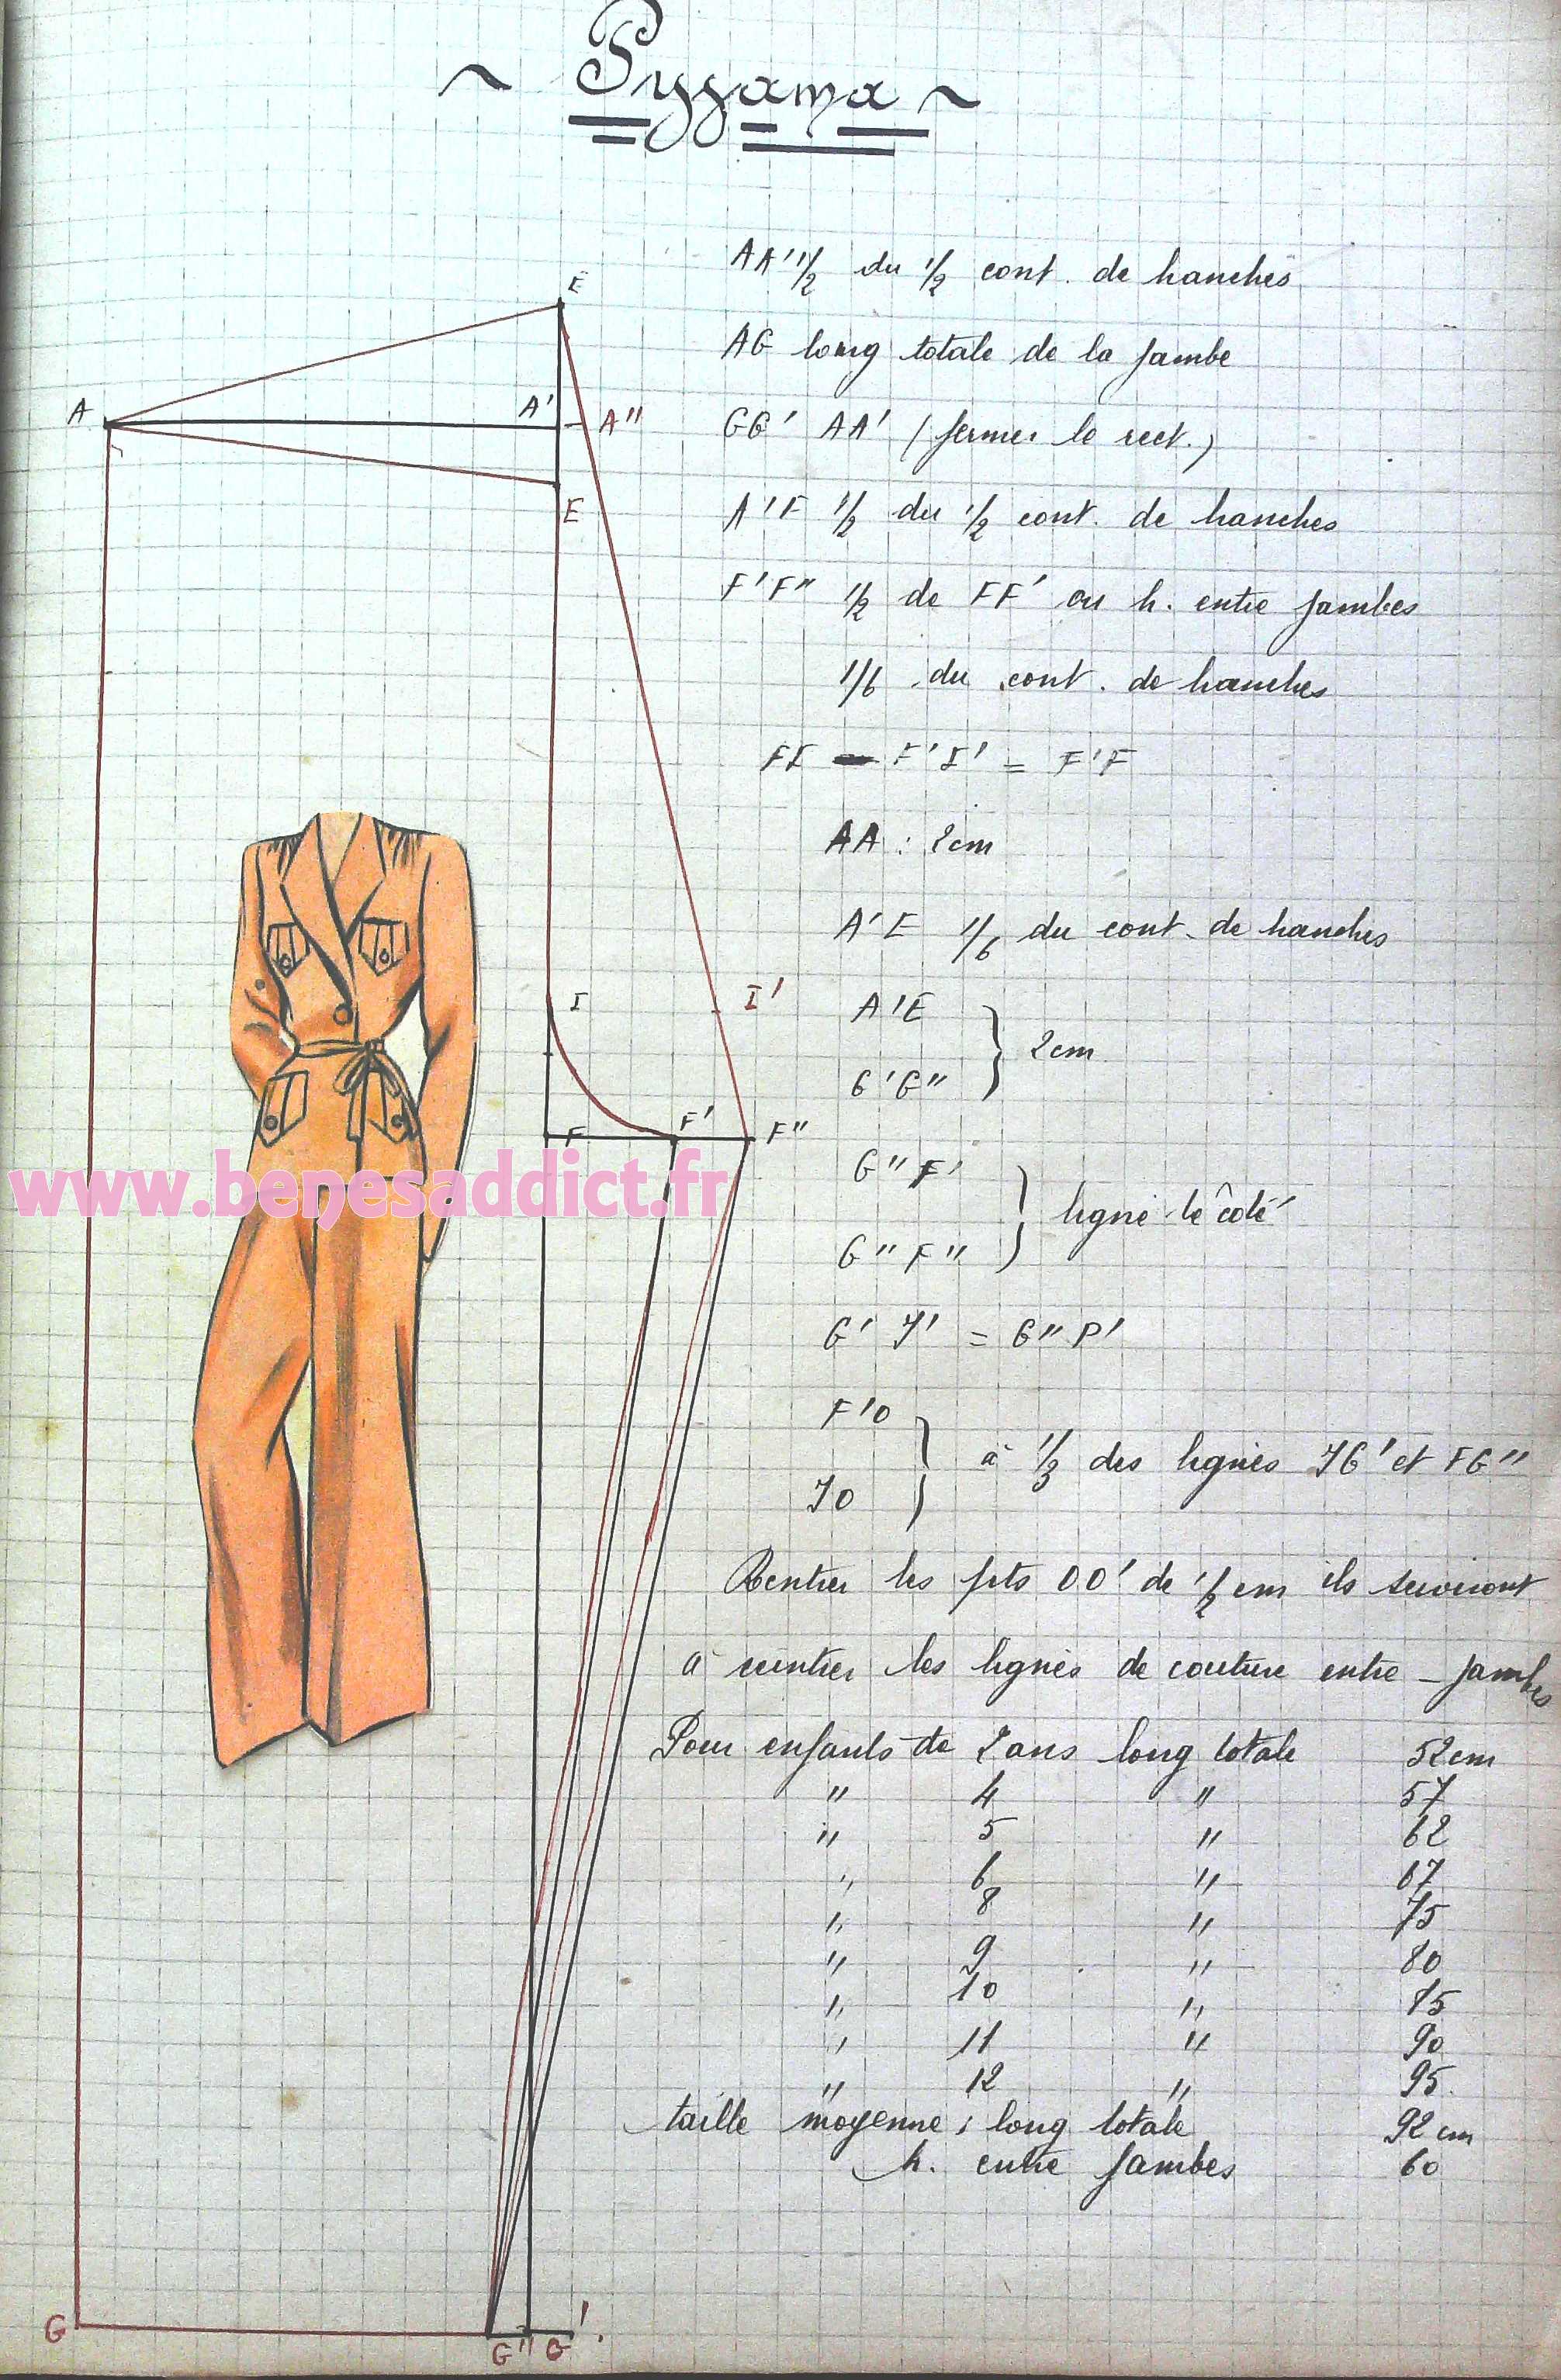 ~ Pygama ~
AA' 1/2 du 1/2 cont. de hanches
AG long totale de la jambe
GG' AA' (fermer le rect.)
A'F 1/2 du 1/2 cont. de hanches
F'F" 1/2 de FF' ou h. entre jambes
1/6 du cont. de hanches
FI F'I' = F'F
AA : 2cm
A'E 1/6 du cont. de hanches
A'E
G'G"
} 2cm
G"F'
G"F"
} ligne de côté
G' J' = G" P'
F'O
JO
} à 1/3 des lignes JG' et FG"
Rentrer les pts OO' de 1/2 cm ils serviront
à cintrer les lignes de couture entre-jambes
Pour enfants de 2 ans long totale 52cm
" 4 " 57
" 5 " 62
" 6 " 67
" 8 " 75
" 9 " 80
" 10 " 85
" 11 " 90
" 12 " 95
taille moyenne : long totale 92 cm
h. entre jambes 60
E
A
A'
A"
E
I
I'
F
F'
F"
G
G"
G'
www.benesaddict.fr